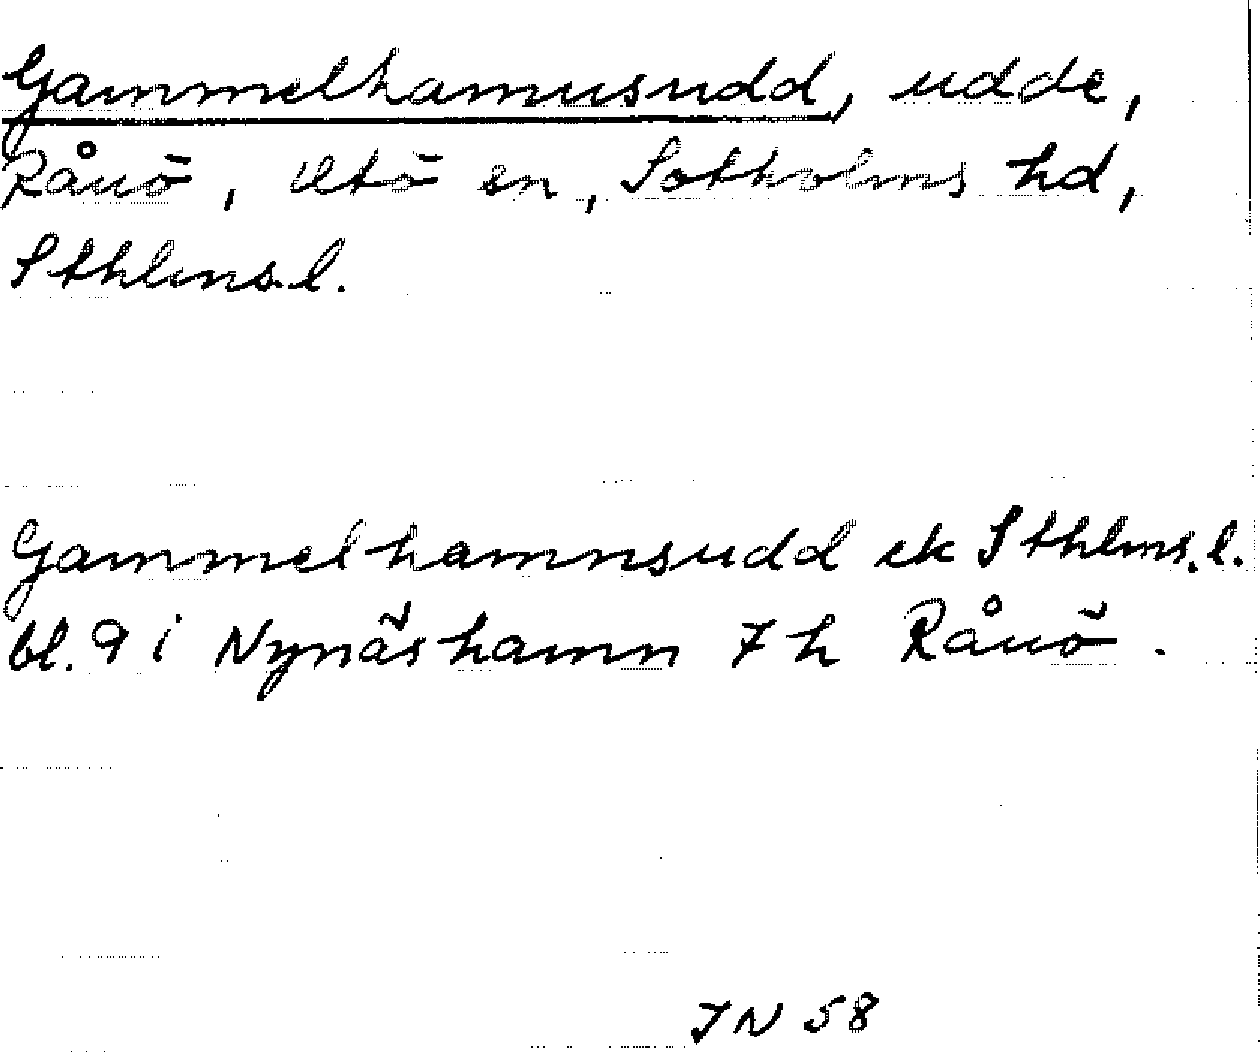 Gammelhamnsudd, udde,
Rånö, Utö sn, Sotholms hd,
Sthlms.l.
Gammelhamnsudd ek Sthlms.l.
bl. 9 i Nynäshamn 7 h Rånö.
JN 58